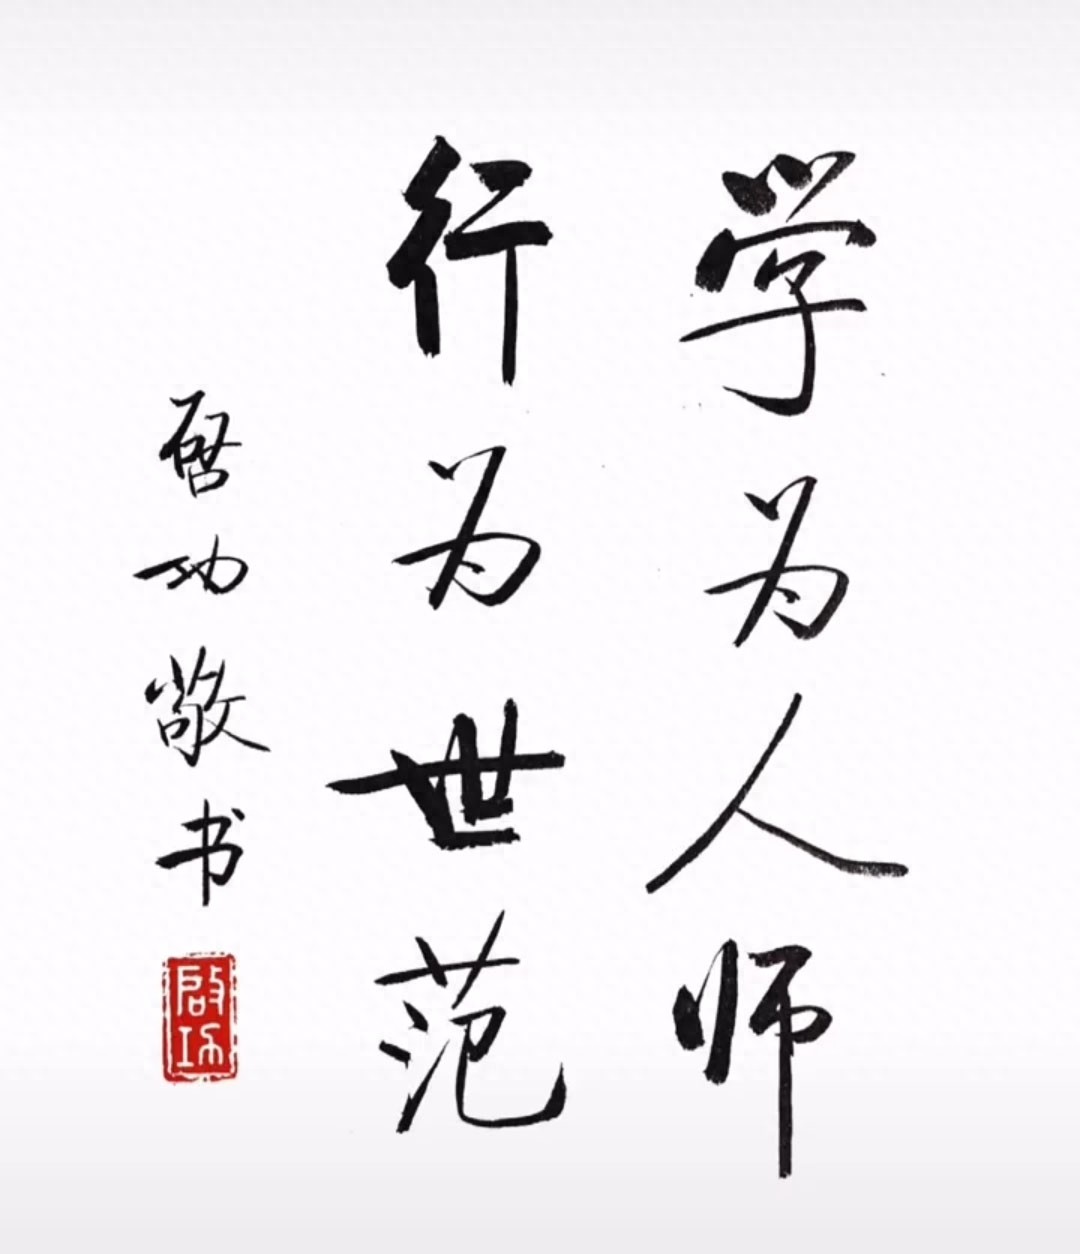 学为人师
行为世范
启功敬书
啓功